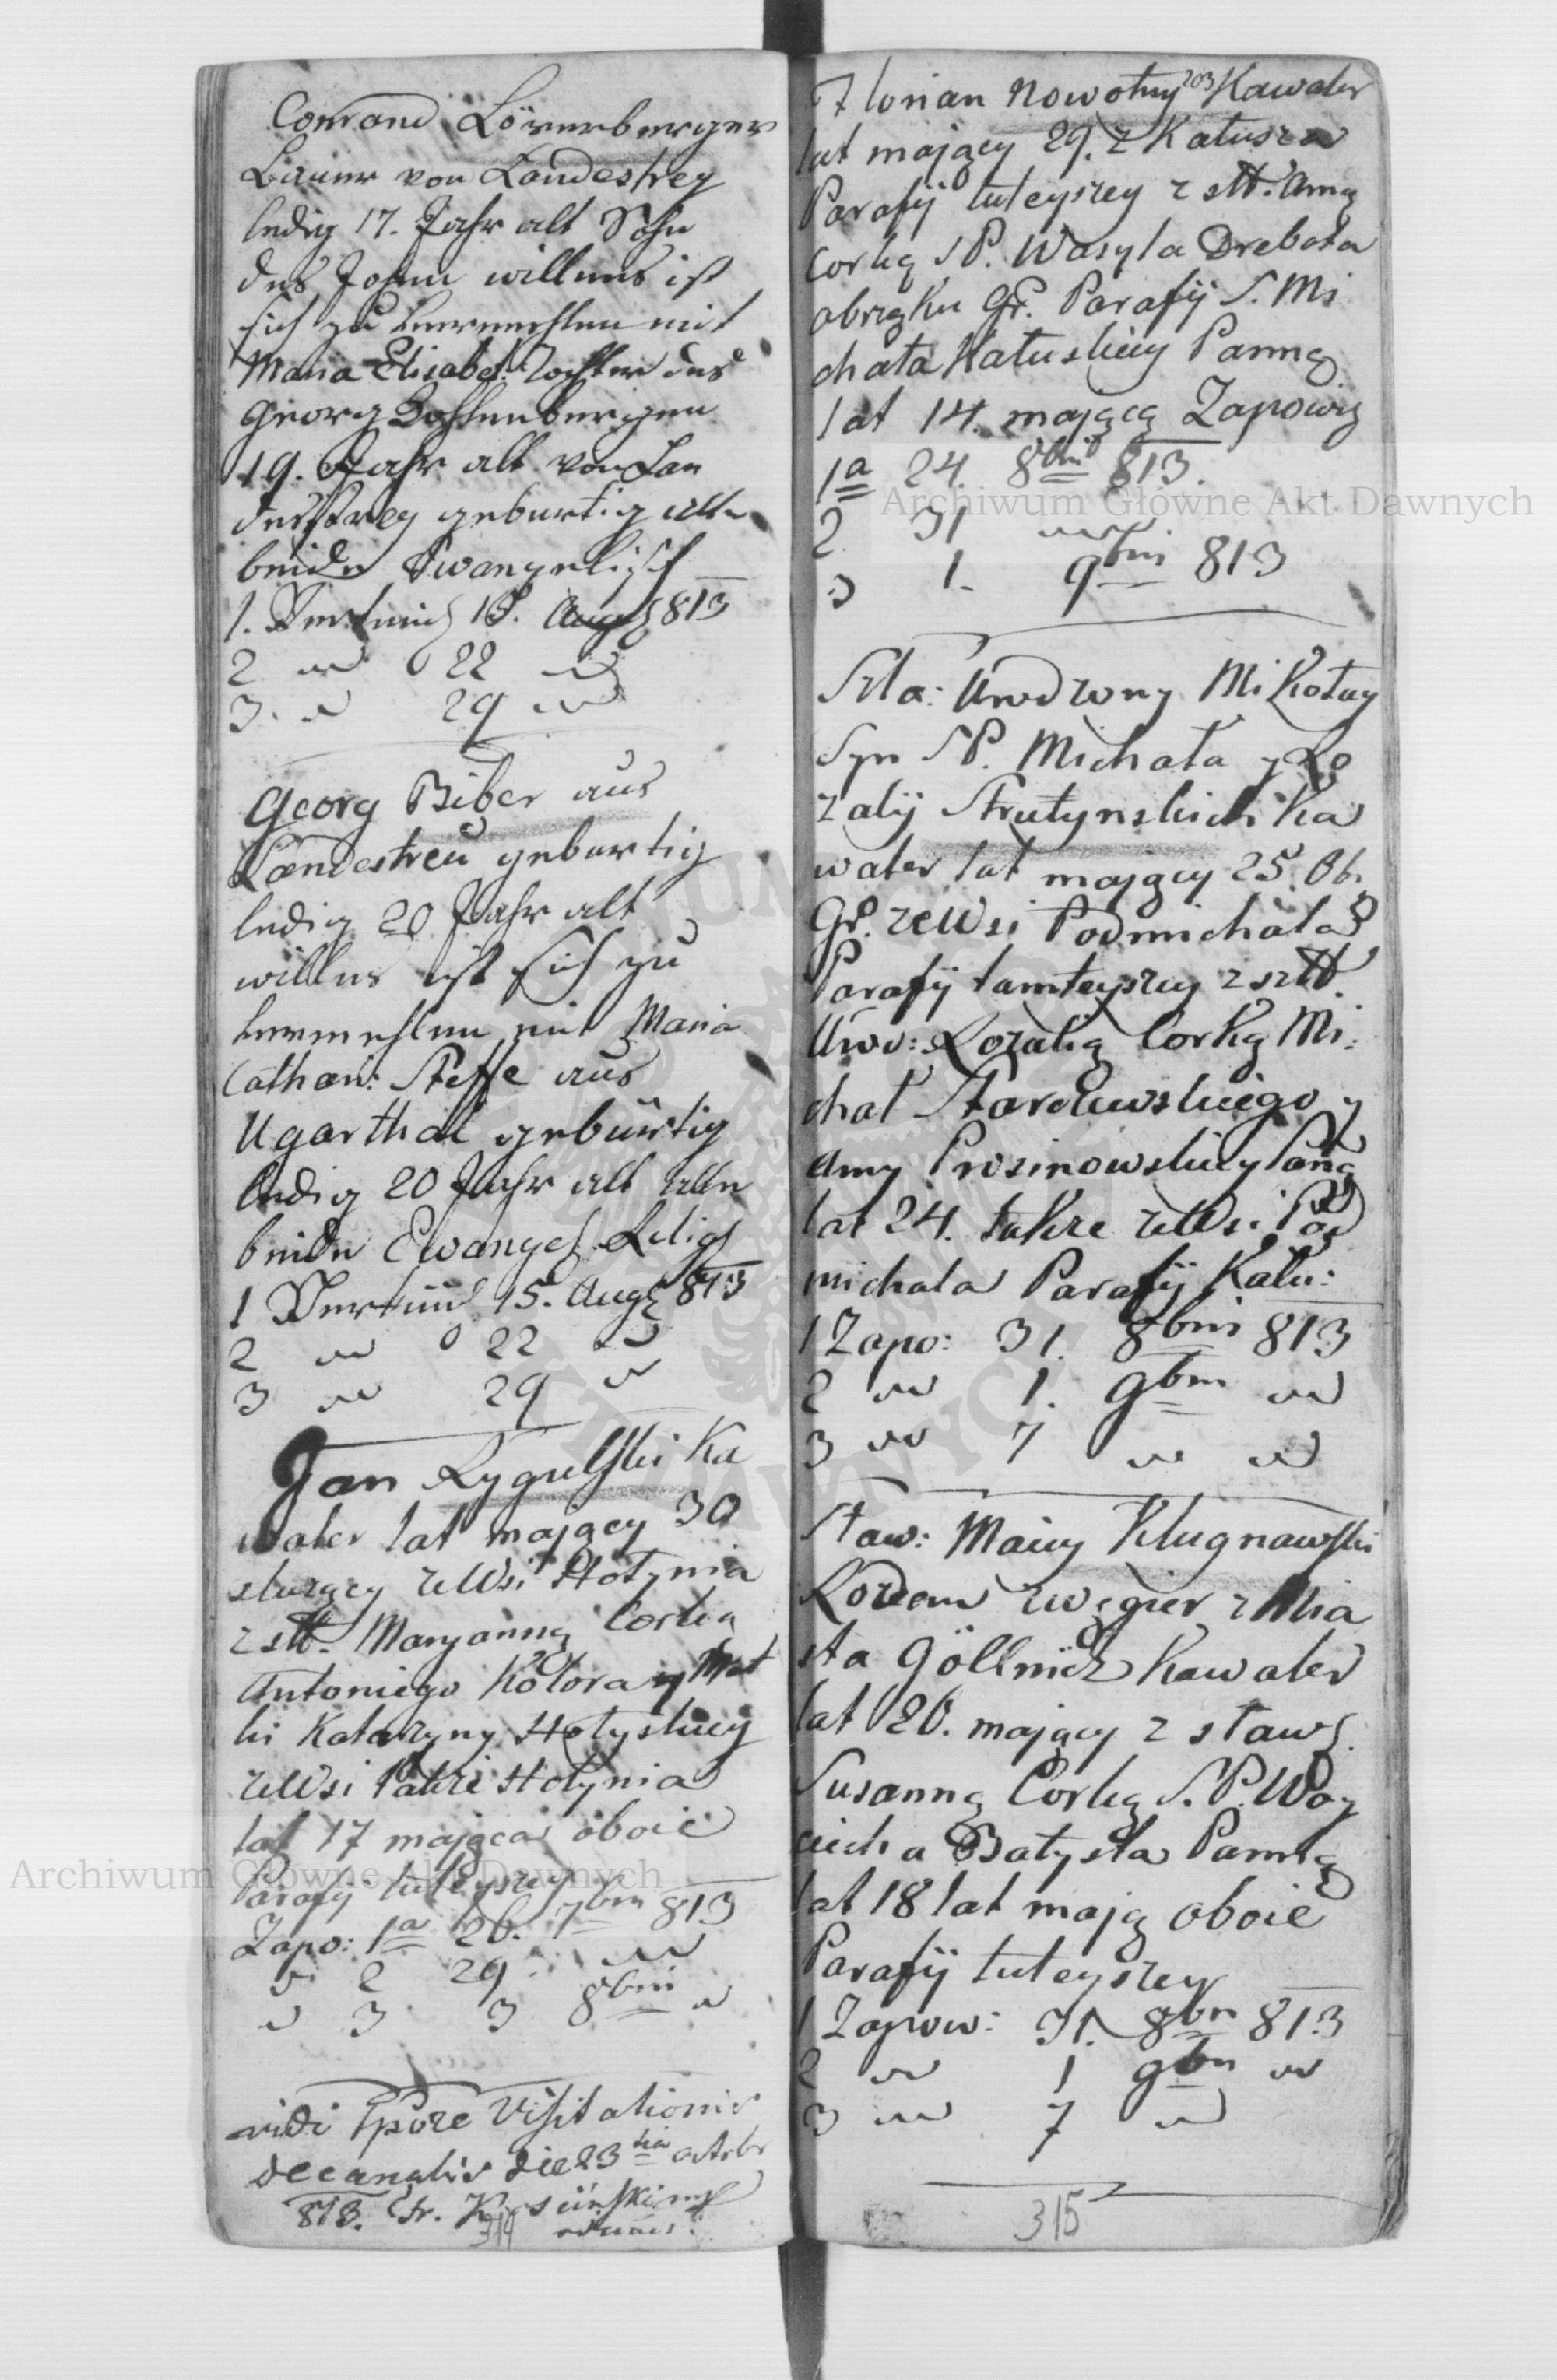 Conrand Lörnerberger
Bauer von Landestrey
ledig 17. Jahr alt Sohn
des Johan willens ist
sich zu vermehlen mit
Maria Elisabet Tochter des
Georg Dohlenbergen
19. Jahr alt von Lan
destrey geburtig alle
beide Ewangelisch
1. Verkünd 15. Aug 813
2 " 22 "
3. " 29 "
Georg Biber aus
Landestreu geburtig
ledig 20 Jahr alt
willens ist sich zu
vermehlen mit Maria
Cathari: Steffe aus
Ugarthal gebürtig
ledig 20 Jahr alt alle
beide Ewangel Religi
1 Verkünd 15. Aug 813
2 " 22 "
3 " 29 "
Jan Rygulski Ka
waler lat mający 30
słuzący zeWsi Hołynia
z stt. Maryanną Corką
Antoniego Kotora y Mat
ki Katarzyny Hołyskiey
zeWsi Pakze Hołynia
lat 17 mająca oboie
Parafij tuteyszey
Zapo: 1a 26. 7bris 813
" 2 29 "
" 3 3 8bris "
vidi Tpore Visitationis
decanalis die 23tia octobr
813. Fr.
314
Florian Nowotny 203 Kawaler
lat mający 29. z Kałusza
Parafij tuteyszey z stt. Anną
Corką SP. Wasyla Drebota
obrzątku Gr. Parafij S. Mi
chała Kałuskiey Panną
lat 14. mającą Zapowiy
1a 24. 8bris 813.
2. 31 "
3 1. 9bris 813
Szla: Urodzony Mikołay
Syn SP. Michała y Ro
zalij Strutynskich Ka
waler lat mający 25. Ob.
Gr. zeWsi Podmichala
Parafij tamteyszey z sztt.
Uro: Rozalią Corką Mi:
chał Starczewskiego y
Anny Prosinowskiey Paną
lat 24. takze zeWsi Pod
michala Parafij Kału:
1 Zapo: 31. 8bris 813
2 " 1. 9bris "
3 " 7 " "
Staw: Maciey Klugnawski
Rodem zwęgier z Mia
sta Göllnicz Kawaler
lat 26. mający z sław.
Susanną Corką S.P. Woy
ciecha Batysta Panną
lat 18 lat mają oboie
Parafij tuteyszey
1 Zapow: 31. 8bris 813
2 " 1 9bris "
3 " 7 "
315
Archiwum Główne Akt Dawnych
Archiwum Główne Akt Dawnych